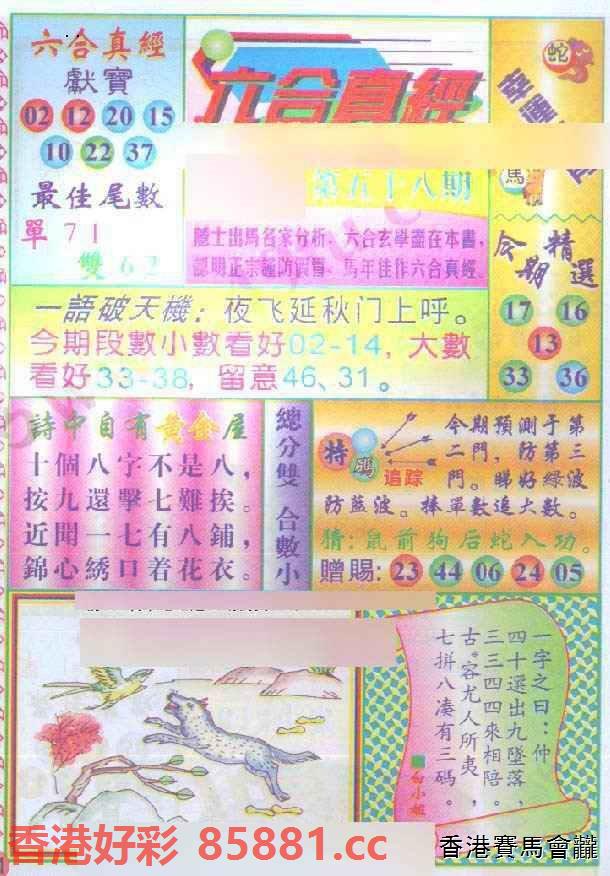 六合真經
獻寶
02 12 20 15
10 22 37
最佳尾數
單 71
雙 62
六合真經
第五十八期
隱士出馬名家分析、六合玄學盡在本書，
認明正宗謹防假冒、馬年佳作六合真經
蛇
馬
今期精選
17 16
13
33 36
一語破天機：夜飞延秋门上呼。
今期段數小數看好02-14，大數
看好33-38，留意46、31。
詩中自有黃金屋
十個八字不是八，
按九還擊七難挨。
近聞一七有八鋪，
錦心綉口着花衣。
總分雙 合數小
特碼
追踪
今期預測于第
二門，防第三
門。睇好绿波
防藍波。捧單數追大數。
猜：鼠前狗后蛇入功。
贈賜：23 44 06 24 05
一字之曰：仲
四十選出九墜落，
三三四四來相陪。
古。容尤人所夷，
七拼八凑有三碼。
白小姐
香港好彩 85881.cc
香港賽馬會